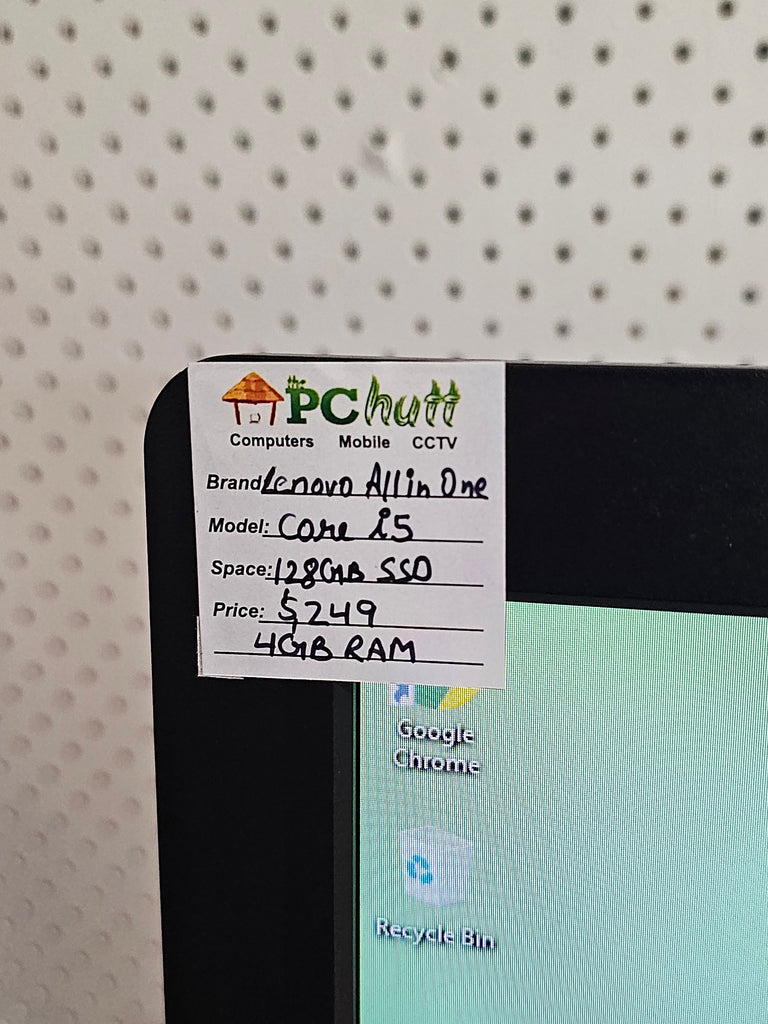 the PC hutt
Computers Mobile CCTV
Brand Lenovo All in One
Model: Core i5
Space: 128GB SSD
Price: $249
4GB RAM
Google
Chrome
Recycle Bin